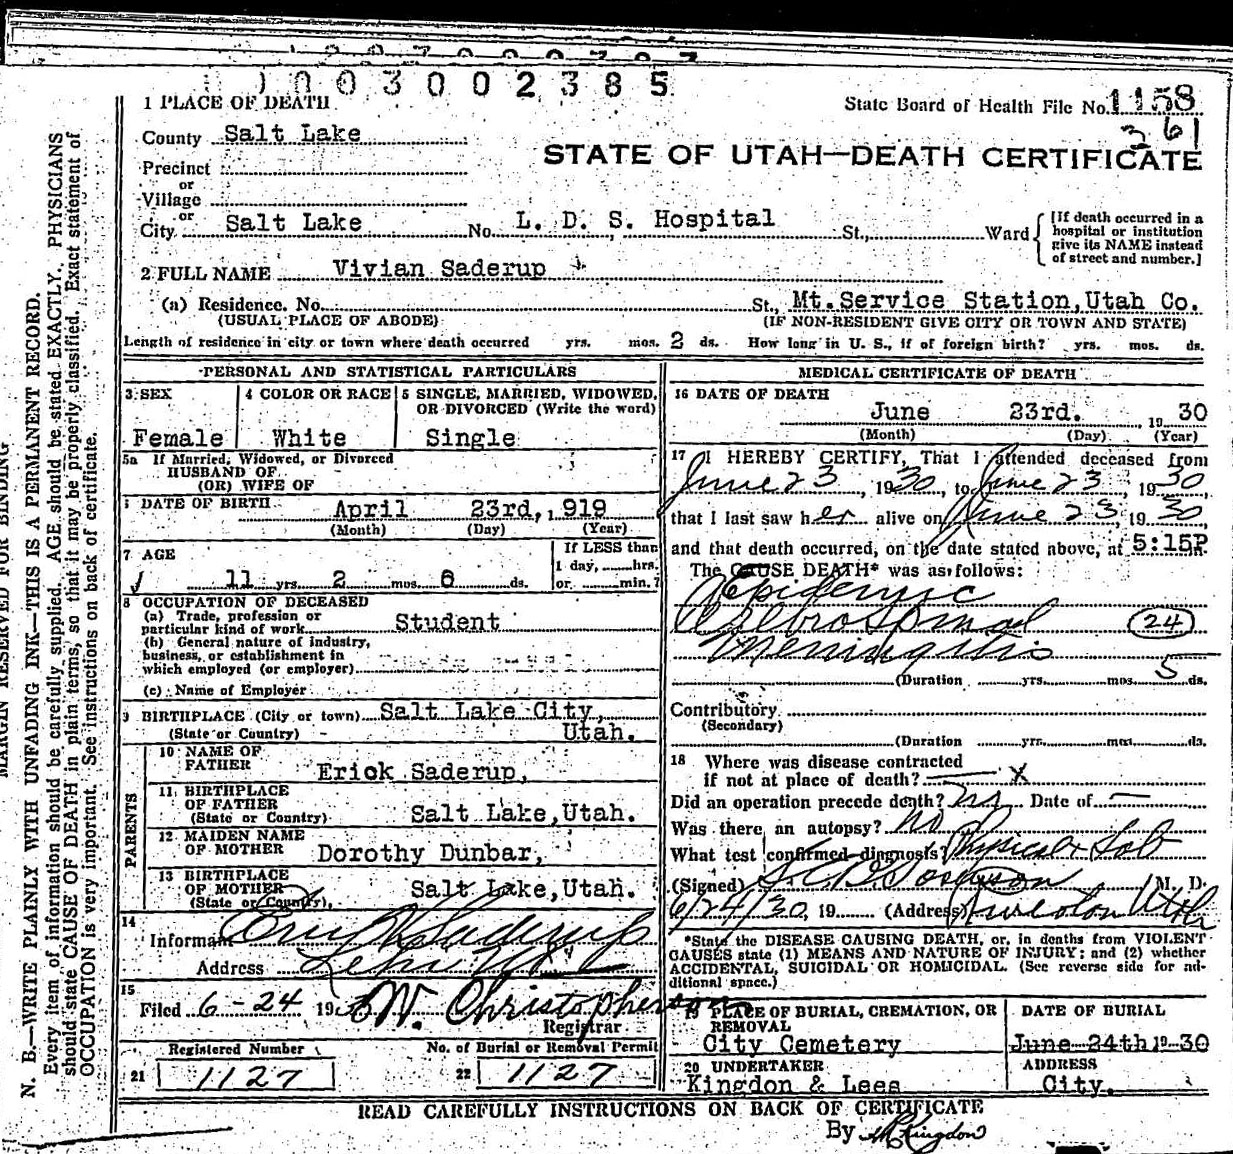 003002385
1 PLACE OF DEATH
State Board of Health File No. 1158
361
County Salt Lake
STATE OF UTAH—DEATH CERTIFICATE
Precinct
or
Village
or
City Salt Lake No. L. D. S. Hospital St., Ward
[If death occurred in a
hospital or institution
give its NAME instead
of street and number.]
2 FULL NAME Vivian Saderup
(a) Residence. No. St., Mt.Service Station,Utah Co.
(USUAL PLACE OF ABODE) (IF NON-RESIDENT GIVE CITY OR TOWN AND STATE)
Length of residence in city or town where death occurred yrs. mos. 2 ds. How long in U. S., if of foreign birth? yrs. mos. ds.
PERSONAL AND STATISTICAL PARTICULARS
3 SEX 4 COLOR OR RACE 5 SINGLE, MARRIED, WIDOWED,
OR DIVORCED (Write the word)
Female White Single
5a If Married, Widowed, or Divorced
HUSBAND OF
(OR) WIFE OF
DATE OF BIRTH April 23rd, 1919
(Month) (Day) (Year)
7 AGE If LESS than
1 day, hrs.
11 yrs. 2 mos. 6 ds. or min.?
8 OCCUPATION OF DECEASED
(a) Trade, profession or
particular kind of work Student
(b) General nature of industry,
business, or establishment in
which employed (or employer)
(c) Name of Employer
9 BIRTHPLACE (City or town) Salt Lake City,
(State or Country) Utah.
PARENTS
10 NAME OF
FATHER Erick Saderup,
11 BIRTHPLACE
OF FATHER
(State or Country) Salt Lake,Utah.
12 MAIDEN NAME
OF MOTHER Dorothy Dunbar,
13 BIRTHPLACE
OF MOTHER
(State or Country), Salt Lake,Utah.
14
Informant Saderup
Address
15
Filed 6-24 1930 W. Christopherson
Registrar
Registered Number No. of Burial or Removal Permit
21 1127 22 1127
MEDICAL CERTIFICATE OF DEATH
16 DATE OF DEATH
June 23rd. 1930
(Month) (Day) (Year)
17 I HEREBY CERTIFY, That I attended deceased from
June 23, 1930, to June 23, 1930,
that I last saw her alive on June 23, 1930,
and that death occurred, on the date stated above, at 5:15P m.
The CAUSE DEATH* was as follows:
Epidemic
Cerebrospinal (24)
Meningitis
(Duration yrs. mos. 5 ds.
Contributory
(Secondary)
(Duration yrs. mos. ds.
18 Where was disease contracted
if not at place of death? x
Did an operation precede death? no Date of —
Was there an autopsy? no
What test confirmed diagnosis? Physical & Lab
(Signed) M. D.
6/24/30, 19 (Address) Utah
*State the DISEASE CAUSING DEATH, or, in deaths from VIOLENT
CAUSES state (1) MEANS AND NATURE OF INJURY; and (2) whether
ACCIDENTAL, SUICIDAL OR HOMICIDAL. (See reverse side for ad-
ditional space.)
19 PLACE OF BURIAL, CREMATION, OR
REMOVAL DATE OF BURIAL
City Cemetery June 24th 19 30
20 UNDERTAKER ADDRESS
Kingdon & Lees City.
READ CAREFULLY INSTRUCTIONS ON BACK OF CERTIFICATE
By Kingdon
MARGIN RESERVED FOR BINDING
N. B.—WRITE PLAINLY WITH UNFADING INK—THIS IS A PERMANENT RECORD.
Every item of information should be carefully supplied. AGE should be stated EXACTLY. PHYSICIANS
should state CAUSE OF DEATH in plain terms, so that it may be properly classified. Exact statement of
OCCUPATION is very important. See instructions on back of certificate.